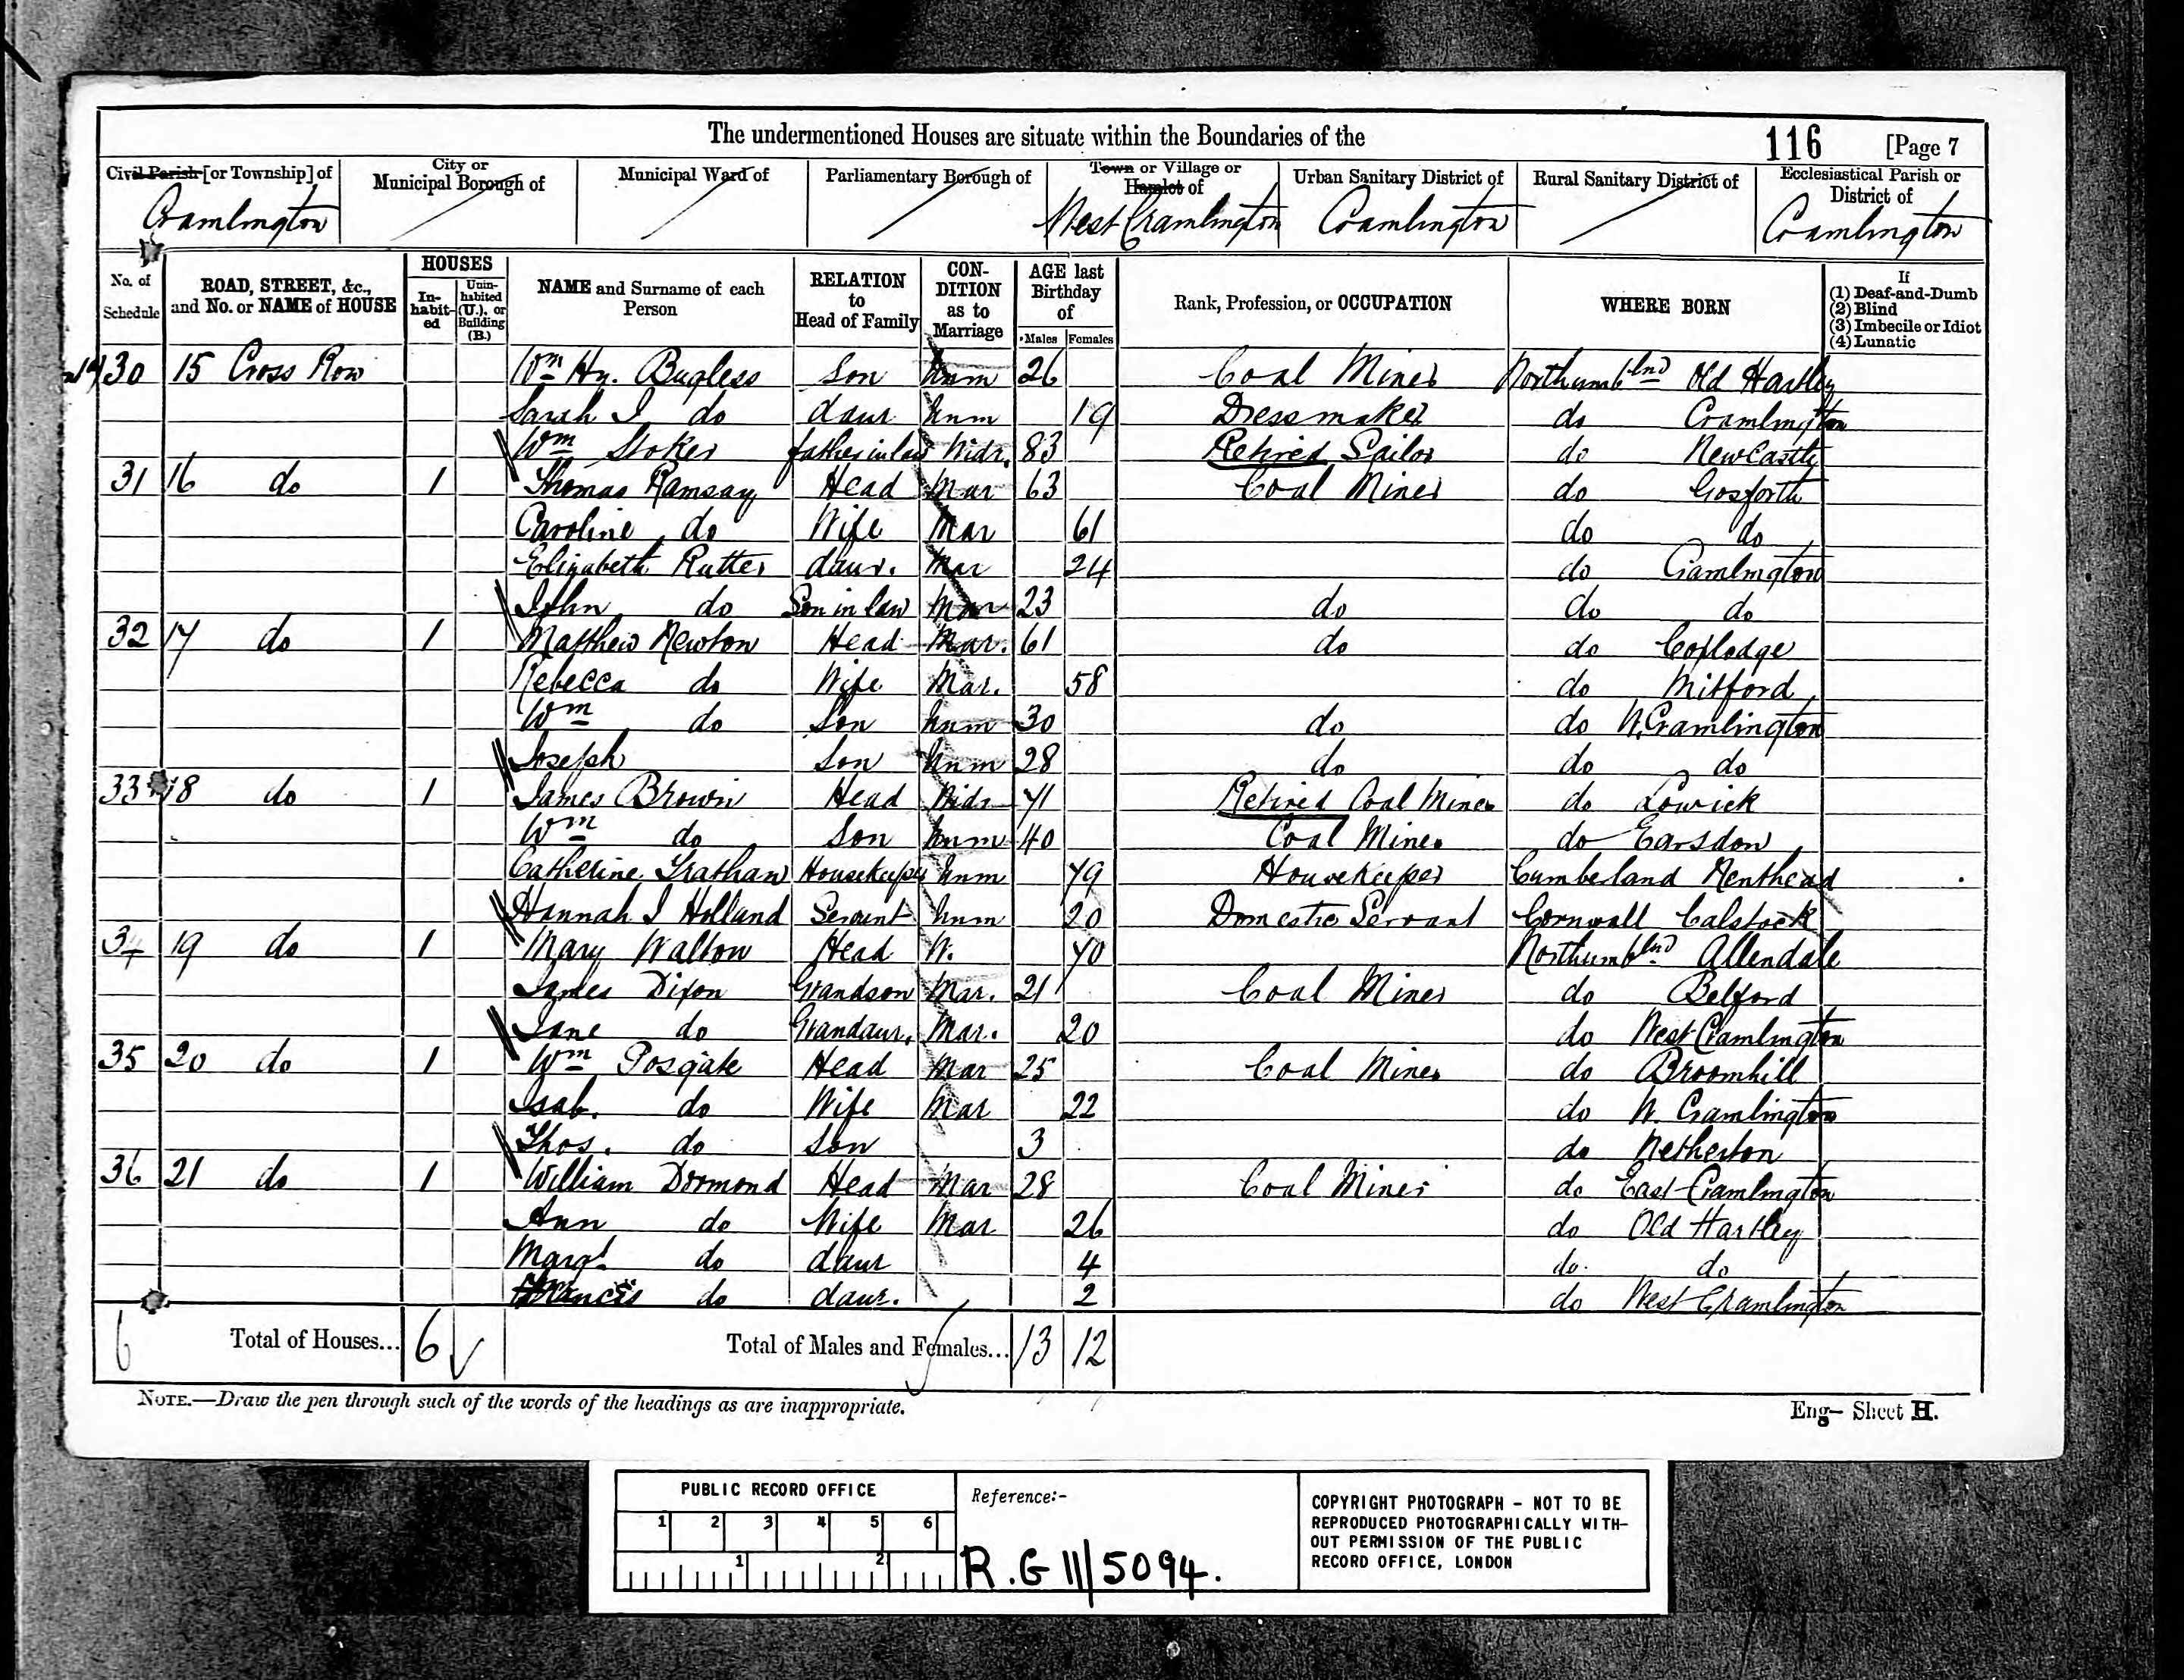 The undermentioned Houses are situate within the Boundaries of the 116 [Page 7
Civil Parish [or Township] of City or Municipal Borough of Municipal Ward of Parliamentary Borough of Town or Village or Hamlet of Urban Sanitary District of Rural Sanitary District of Ecclesiastical Parish or District of
Cramlington West Cramlington Cramlington Cramlington
No. of Schedule ROAD, STREET, &c., and No. or NAME of HOUSE HOUSES In-habit-ed Unin-habited (U.), or Building (B.) NAME and Surname of each Person RELATION to Head of Family CON-DITION as to Marriage AGE last Birthday of Males Females Rank, Profession, or OCCUPATION WHERE BORN If (1) Deaf-and-Dumb (2) Blind (3) Imbecile or Idiot (4) Lunatic
30 15 Cross Row Wm Hy. Bugless Son Unm 26 Coal Miner Northumblnd Old Hartley
Sarah I do daur Unm 19 Dressmaker do Cramlington
Wm Stoker father in law Widr. 83 Retired Sailor do NewCastle
31 16 do 1 Thomas Ramsay Head Mar 63 Coal Miner do Gosforth
Caroline do Wife Mar 61 do do
Elizabeth Rutter daur. Mar 24 do Cramlington
John do Son in law Mar 23 do do do
32 17 do 1 Matthew Newton Head Mar. 61 do do Coxlodge
Rebecca do Wife Mar. 58 do Mitford
Wm do Son Unm 30 do do W. Cramlington
Joseph Son Unm 28 do do do
33 18 do 1 James Brown Head Widr 71 Retired Coal Miner do Lowick
Wm do Son Unm 40 Coal Miner do Earsdon
Catherine Housekeeper Unm 79 Housekeeper Cumberland Nenthead
Hannah I Holland Servant Unm 20 Domestic Servant Cornwall Calstock
34 19 do 1 Mary Walton Head W. 70 Northumblnd Allendale
James Dixon Grandson Mar. 21 Coal Miner do Belford
Jane do Grandaur. Mar. 20 do West Cramlington
35 20 do 1 Wm Posgate Head Mar 25 Coal Miner do Broomhill
Isab. do Wife Mar 22 do W. Cramlington
Thos. do Son 3 do Netherton
36 21 do 1 William Dormond Head Mar 28 Coal Miner do East Cramlington
Ann do Wife Mar 26 do Old Hartley
Margt do daur 4 do do
do daur. 2 do West Cramlington
6 Total of Houses... 6 Total of Males and Females... 13 12
NOTE.—Draw the pen through such of the words of the headings as are inappropriate. Eng— Sheet H.
PUBLIC RECORD OFFICE
1 2 3 4 5 6
1 2
Reference:-
R.G 11/5094.
COPYRIGHT PHOTOGRAPH - NOT TO BE
REPRODUCED PHOTOGRAPHICALLY WITH-
OUT PERMISSION OF THE PUBLIC
RECORD OFFICE, LONDON